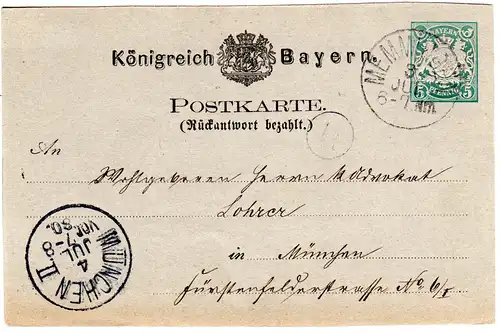 Königreich Bayern.
BAYERN
5 5
PFENNIG
MEMM
3
JUL
6-7 Nm
POSTKARTE.
(Rückantwort bezahlt.)
An
Wohlgeboren Herrn Advokat
Lohrer
in München
Fürstenfelderstrasse No 6/I
MÜNCHEN II
4
JUL
7-8
Vor. 80.